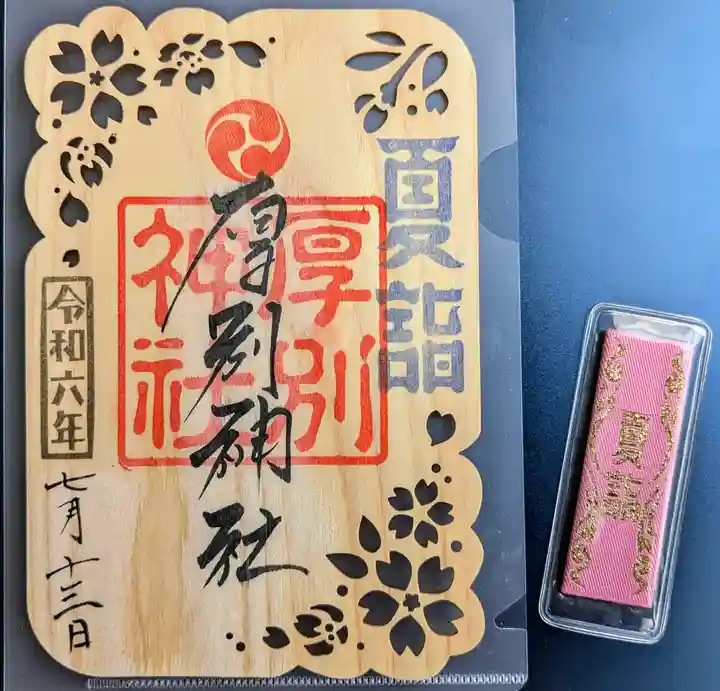 夏詣
厚別神社
厚別神社
令和六年
七月十三日